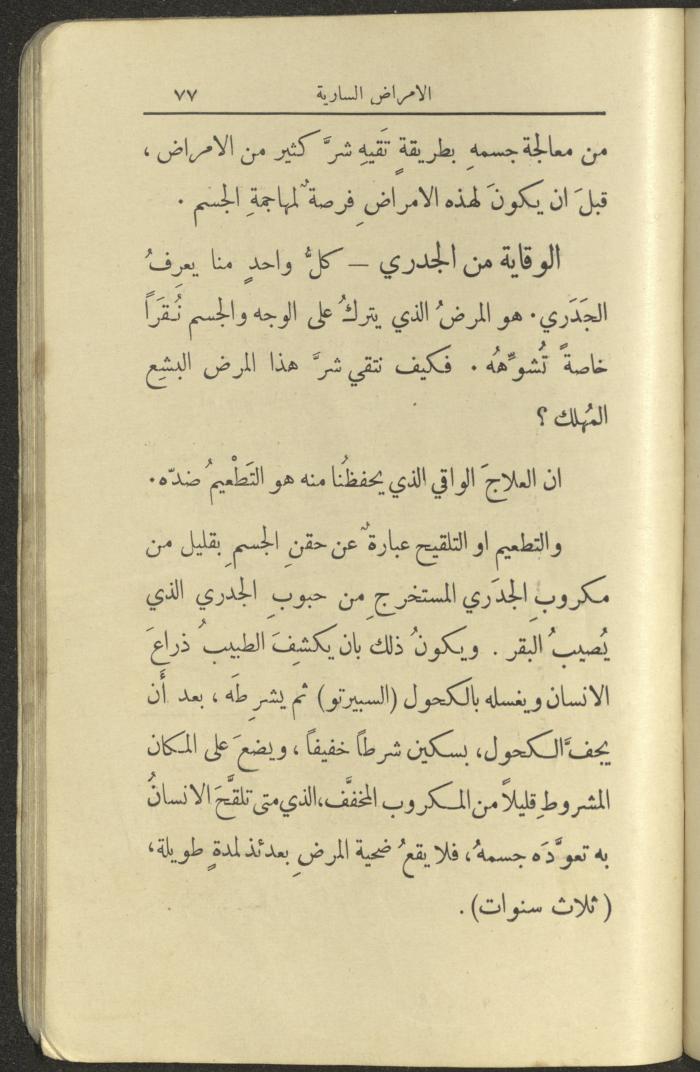 الامراض السارية ٧٧
من معالجة جسمهِ بطريقةٍ تَقيهِ شرَّ كثير من الامراض ،
قبلَ ان يكونَ لهذه الامراضِ فرصةٌ لمهاجمةِ الجسم ٠
الوقاية من الجدري — كلُّ واحدٍ منا يعرِفُ
الجَدَري٠ هو المرضُ الذي يتركُ على الوجه والجسم نُقَراً
خاصةً تُشوِّههُ ٠ فكيف نتقي شرَّ هذا المرض البشِع
المُهلك ؟
ان العلاجَ الواقي الذي يحفظُنا منه هو التَطْعيمُ ضدّه٠
والتطعيم او التلقيح عبارةٌ عن حقنِ الجسمِ بقليل من
مكروبِ الجدَري المستخرجِ من حبوبِ الجدري الذي
يُصيبُ البقر . ويكونُ ذلك بان يكشفَ الطبيبُ ذراعَ
الانسان ويغسله بالكحول (السبيرتو) ثم يشرِطَه ، بعد أن
يجفَّ الكحول، بسكين شرطاً خفيفاً ، ويضعَ على المكان
المشروطِ قليلاً من المكروب المخفَّف،الذي متى تلقَّحَ الانسانُ
به تعوَّدَه جسمهُ، فلا يقعُ ضحية المرضِ بعدئذ لمدةٍ طويلة،
(ثلاث سنوات) .